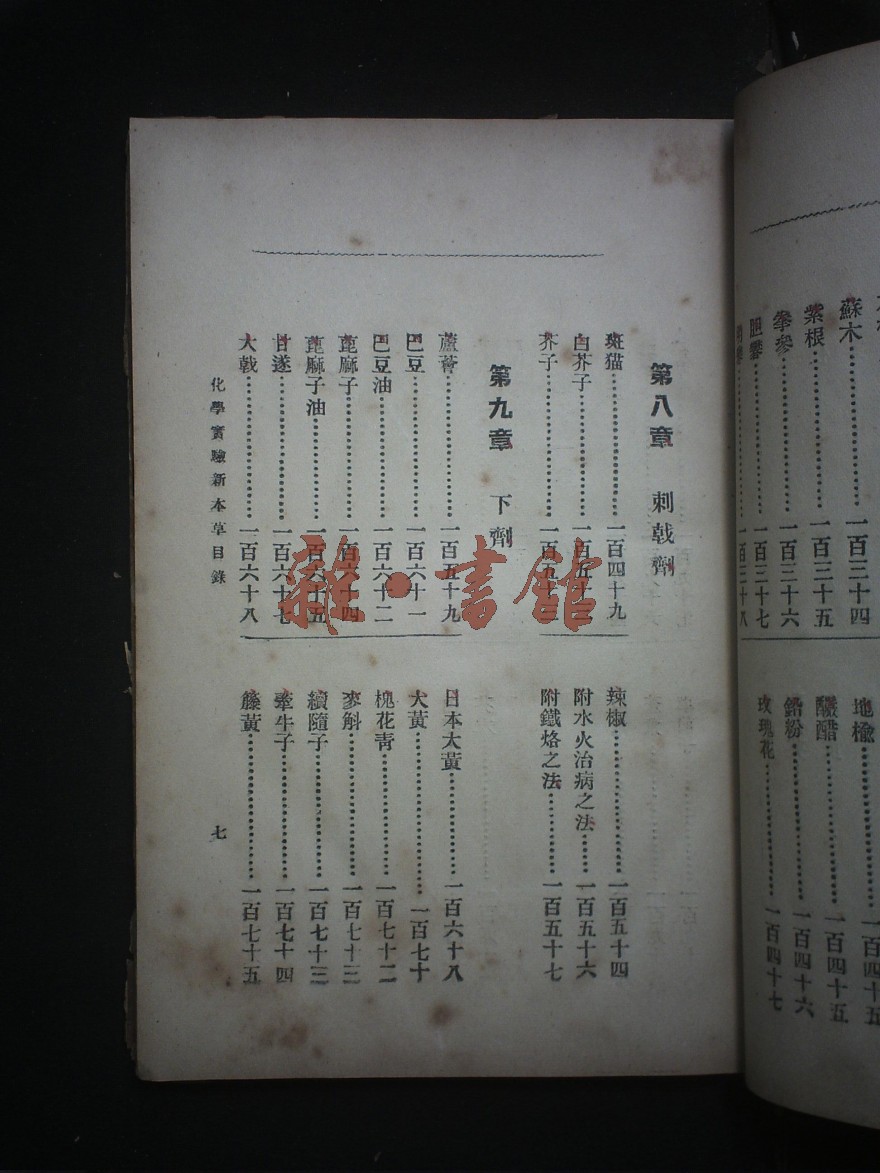 蘇木……一百三十四
紫根……一百三十五
拳參……一百三十六
胆礬……一百三十七
地楡
醱醋……一百四十五
鉛粉……一百四十六
玫瑰花……一百四十七
第八章 刺戟劑
斑猫……一百四十九
白芥子……一百五十二
芥子……一百五十三
辣椒……一百五十四
附水火治病之法……一百五十六
附鐵烙之法……一百五十七
第九章 下劑
蘆薈……一百五十九
巴豆……一百六十一
巴豆油……一百六十二
蓖麻子……一百六十四
蓖麻子油……一百六十五
甘遂……一百六十七
大戟……一百六十八
日本大黃……一百六十八
大黃……一百七十
槐花青……一百七十二
麥斛……一百七十三
續隨子……一百七十三
牽牛子……一百七十四
籐黃……一百七十五
化學實驗新本草目錄
七
雜·書館